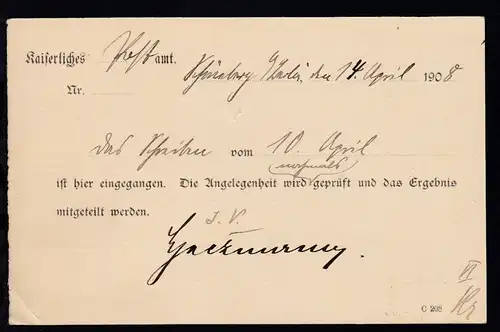 Kaiserliches Postamt.
Schöneberg b/Berlin, den 14 April 1908
Nr.
Das Schreiben vom 10. April
nochmals
ist hier eingegangen. Die Angelegenheit wird geprüft und das Ergebnis
mitgeteilt werden.
J. V.
VI
C 208